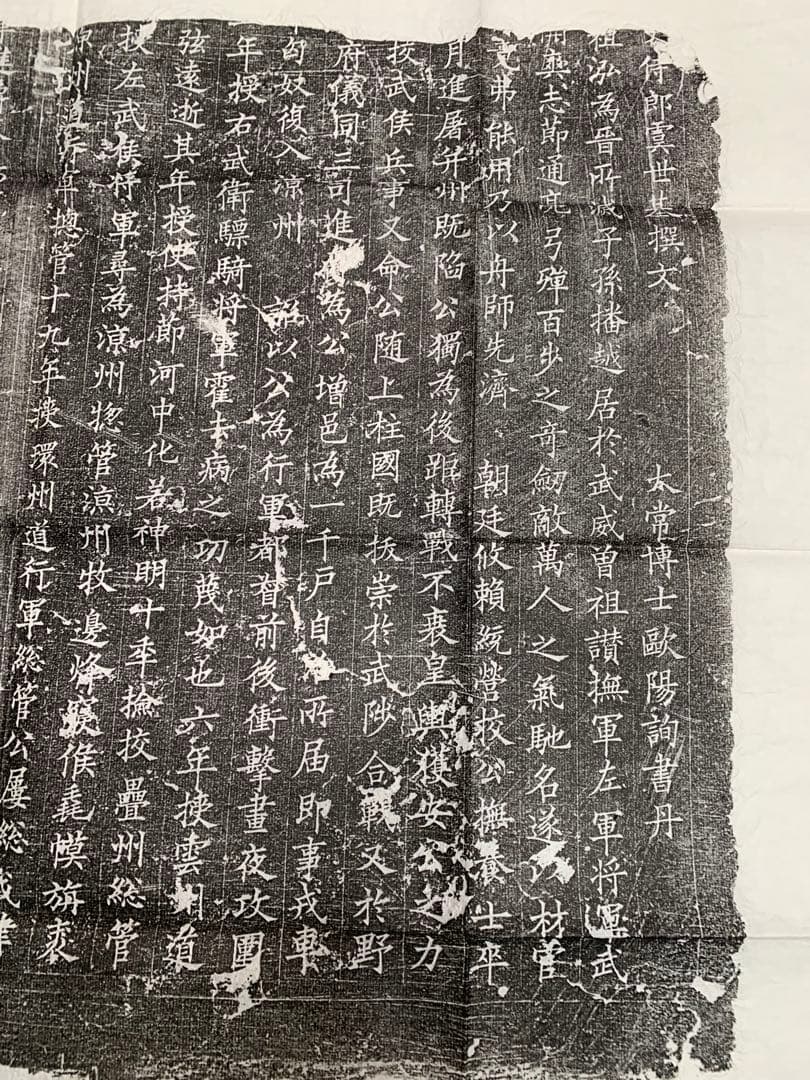 侍郎虞世基撰文 太常博士歐陽詢書丹
祖泓為晉所滅子孫播越居於武威曾祖讃撫軍左軍将軍武
州與志節通亮弓彈百步之奇劒敵萬人之氣馳名遂以材官
弗能用乃以舟師先濟 朝廷攸賴統營校公撫養士卒
月進屠并州既陷公獨為後距轉戰不衰皇輿獲安公之力
授武侯兵事又命公随上柱國既拔崇於武陟合戰又於野
府儀同三司進為公增邑為一千戶自所届即事戎軒
匈奴復入涼州 詔以公為行軍都督前後衝擊晝夜攻圍
年授右武衛驃騎将軍霍去病之功蔑如也六年授雲州道
弦遠逝其年授使持節河中化若神明十年撿挍疊州総管
授左武侯将軍尋為涼州惣管涼州牧邊烽候毳幙旃裘
涼州道行軍揔管十九年授環州道行軍総管公屢総戎律